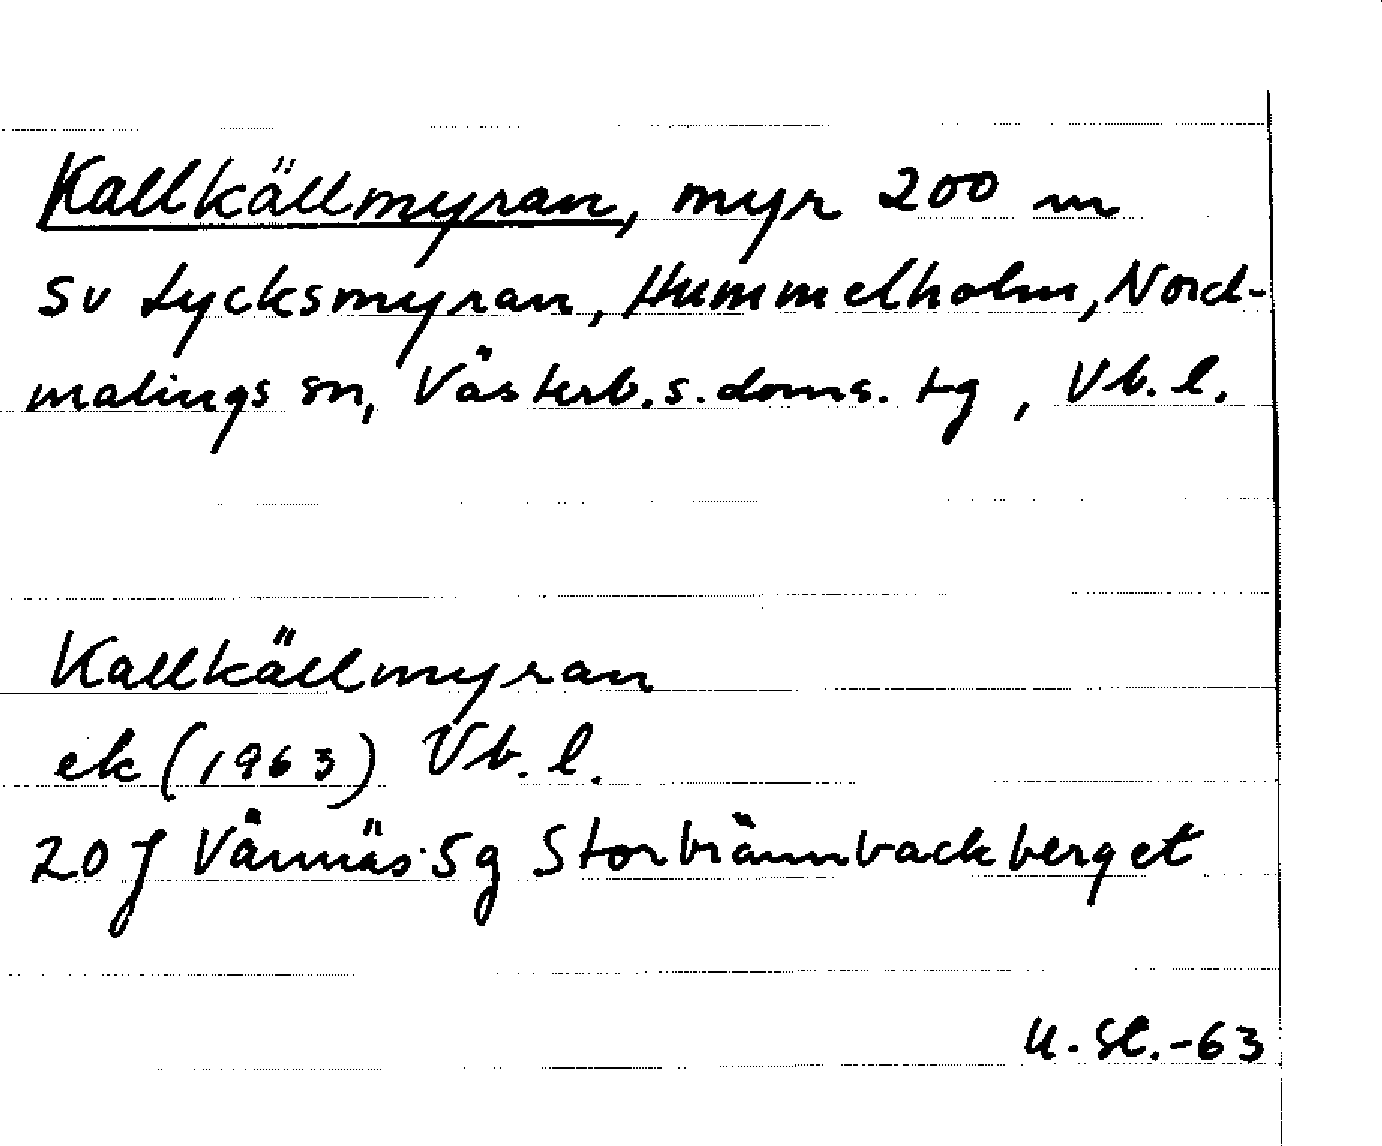 Kallkällmyran, myr 200 m
sv Lycksmyran, Hummelholm, Nord-
malings sn, Västerb. s. doms. tg, Vb. l.
Kallkällmyran
ek (1963) Vb. l.
20 J Vännäs 5 g Storbrännbackberget
U. Sl. -63